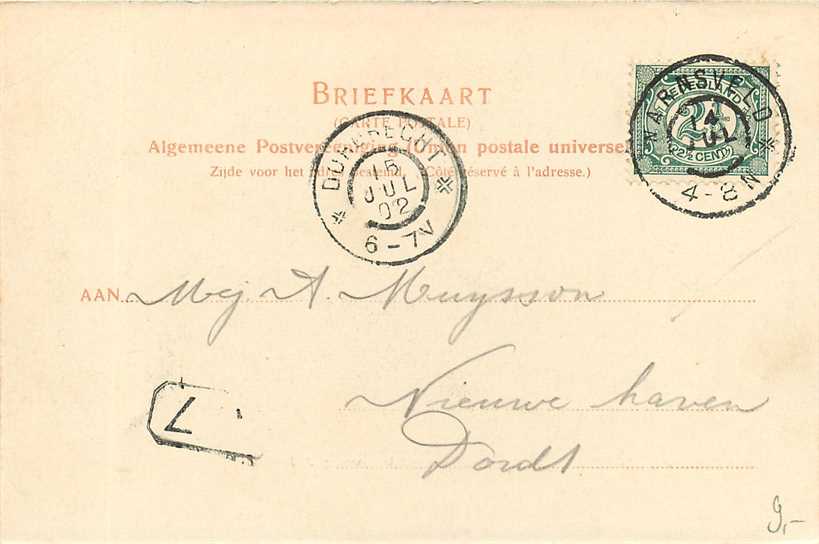 BRIEFKAART
(CARTE POSTALE)
Algemeene Postvereeniging (Union postale universelle)
Zijde voor het adres bestemd. (Côté réservé à l'adresse.)
NEDERLAND
2½
(2½ CENT)
WARNSVELD
14
JUL
4-8N
DORDRECHT
15
JUL
02
6-7V
AAN Mej A. Muysson
Nieuwe haven
Dordt
7
9,-